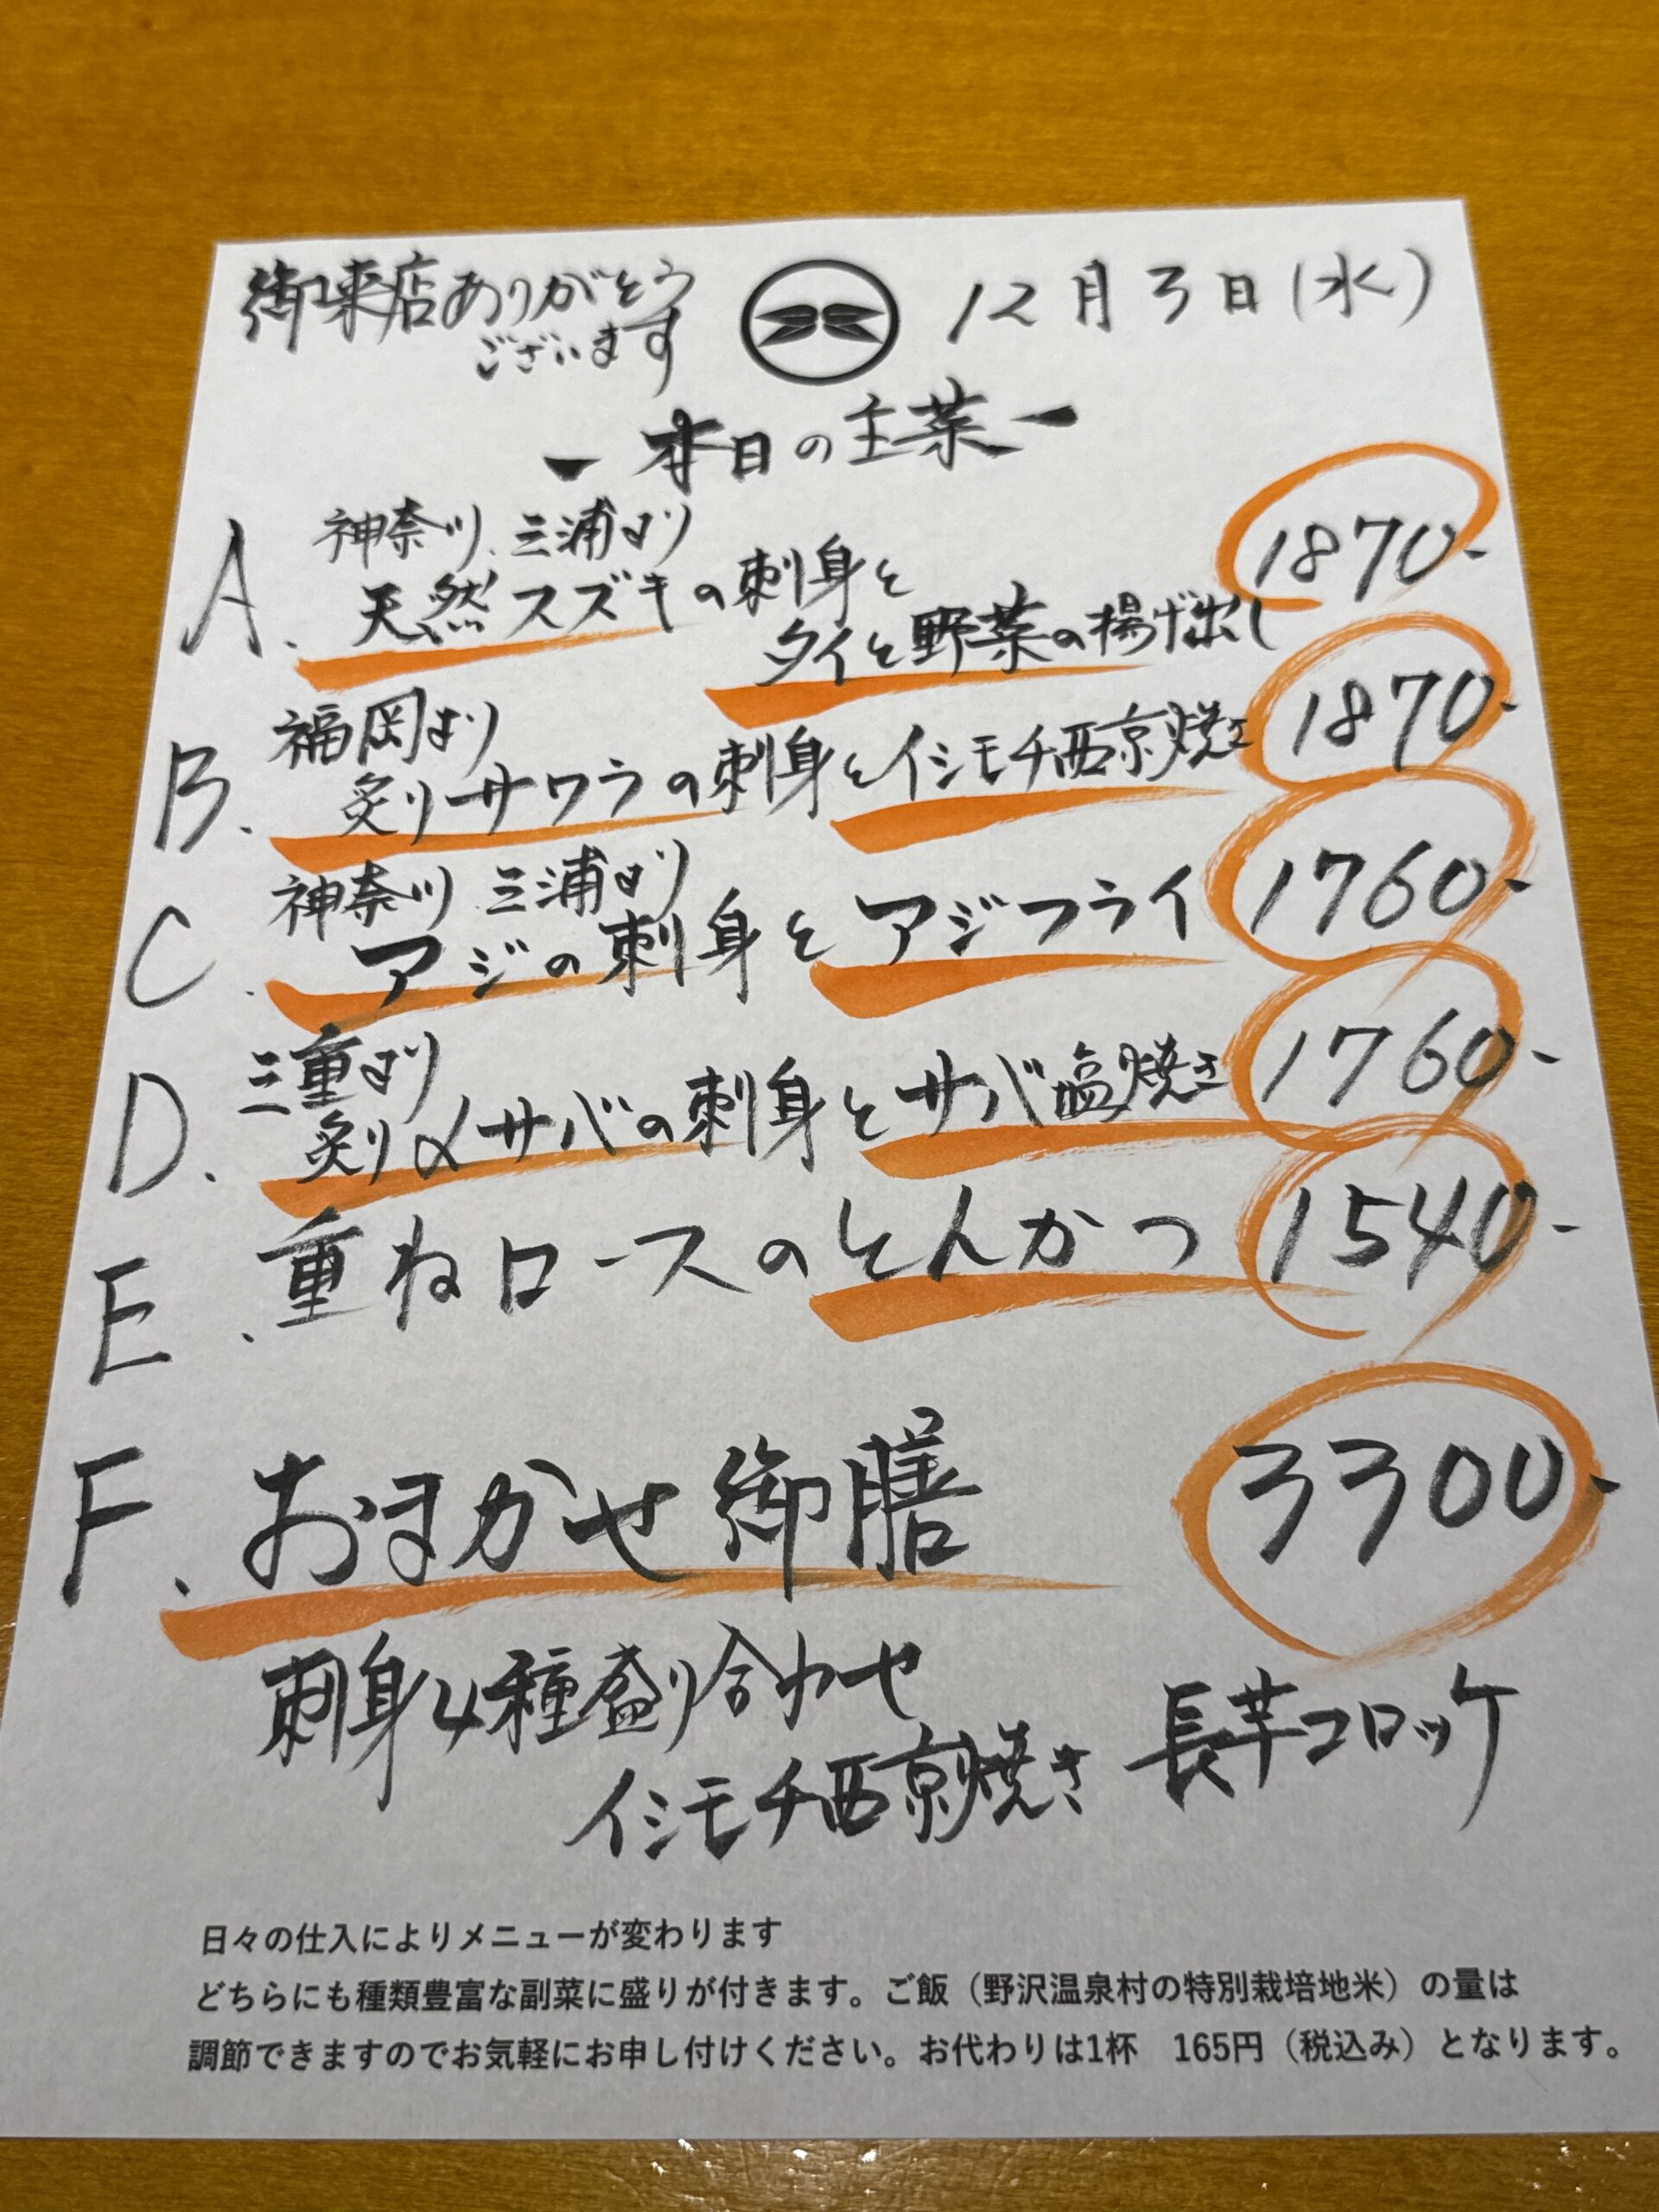 御来店ありがとう
ございます
12月3日(水)
ー本日の主菜ー
A. 神奈川、三浦より
天然スズキの刺身と
タイと野菜の揚げ出し
1870-
B. 福岡より
炙りサワラの刺身とイシモチ西京焼き
1870-
C. 神奈川 三浦より
アジの刺身とアジフライ
1760-
D. 三重より
炙り〆サバの刺身とサバ塩焼き
1760-
E. 重ねロースのとんかつ
1540-
F. おまかせ御膳
3300-
刺身4種盛り合わせ
イシモチ西京焼き 長芋コロッケ
日々の仕入によりメニューが変わります
どちらにも種類豊富な副菜に盛りが付きます。ご飯（野沢温泉村の特別栽培地米）の量は
調節できますのでお気軽にお申し付けください。お代わりは1杯 165円（税込み）となります。